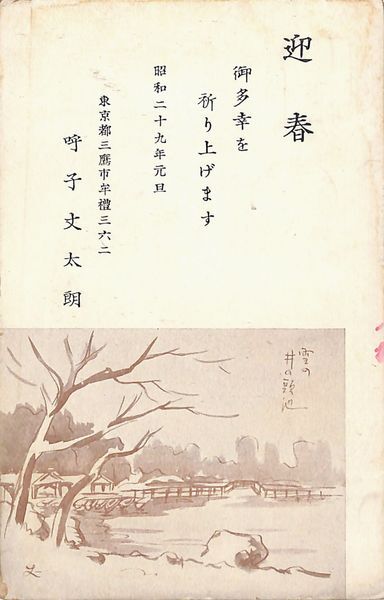 迎春
御多幸を
祈り上げます
昭和二十九年元旦
東京都三鷹市牟禮三六二
呼子丈太朗
雪の
井の頭池
丈